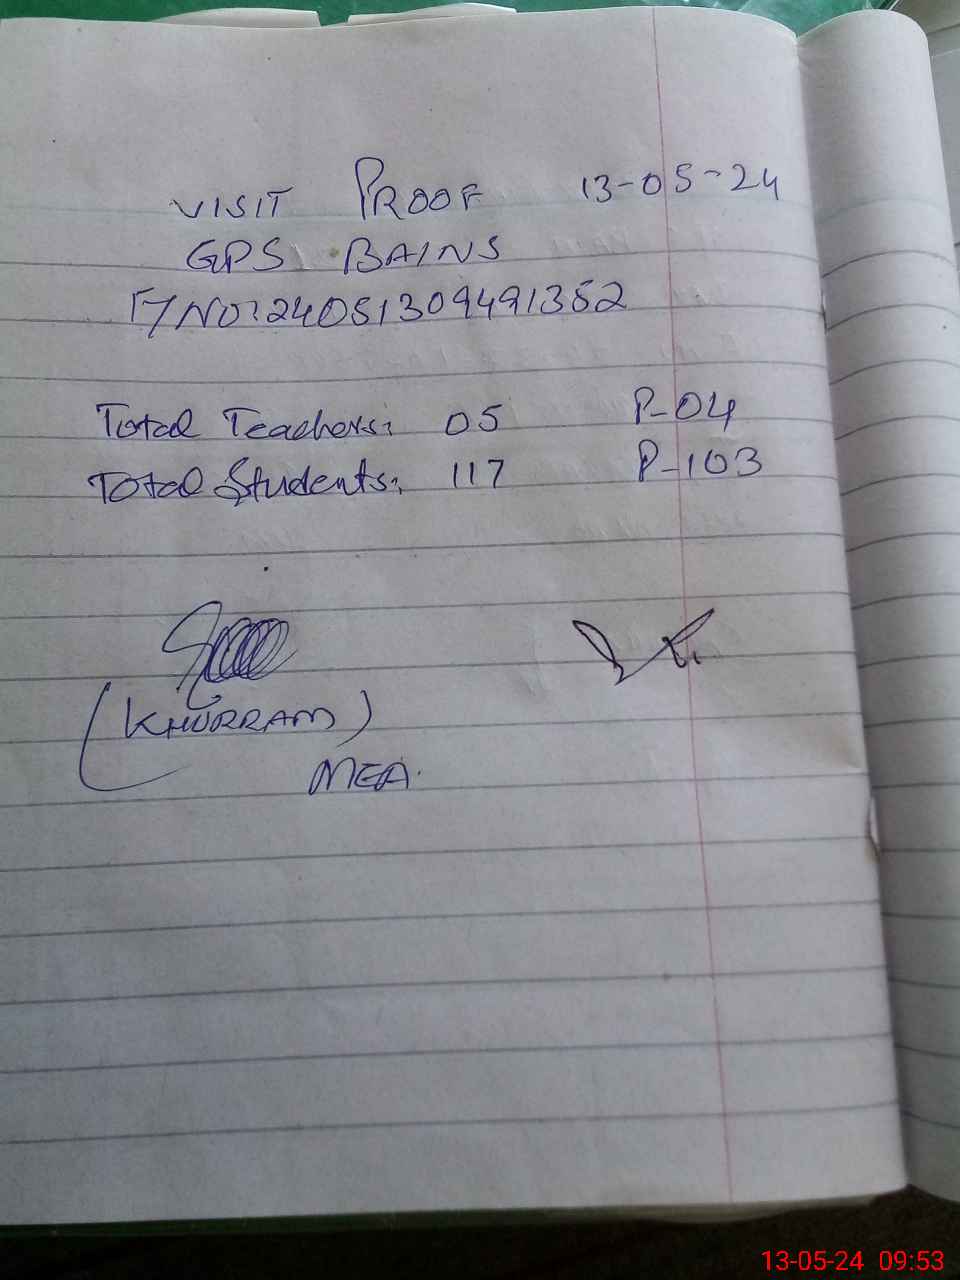 VISIT PROOF 13-05-24
GPS BAINS
F/NO:24051309491352
Total Teachers: 05 P-04
Total Students: 117 P-103
(KHURRAM)
MEA.
13-05-24 09:53